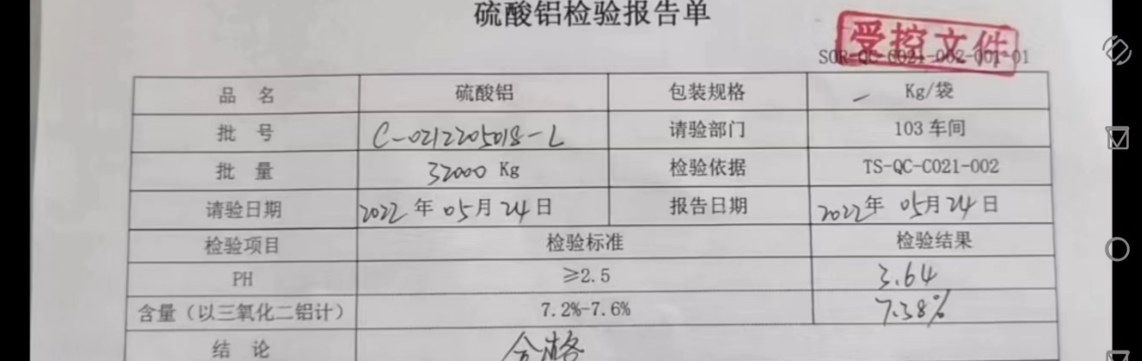 硫酸铝检验报告单
受控文件
SOR-QC-C021-002-001-01
品 名 硫酸铝 包装规格 — Kg/袋
批 号 C-0212205018-L 请验部门 103 车间
批 量 32000 Kg 检验依据 TS-QC-C021-002
请验日期 2022 年 05 月 24 日 报告日期 2022 年 05 月 24 日
检验项目 检验标准 检验结果
PH ≥2.5 3.64
含量（以三氧化二铝计） 7.2%-7.6% 7.38%
结 论 合格